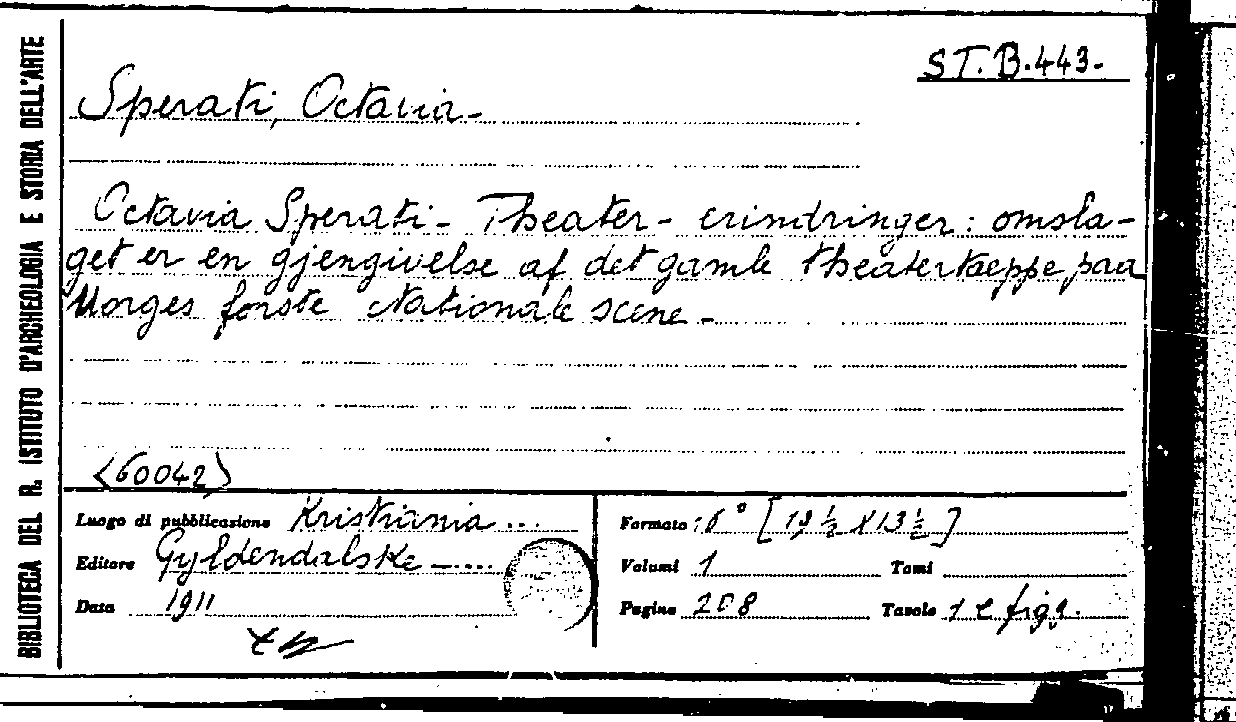 BIBLIOTECA DEL R. ISTITUTO D'ARCHEOLOGIA E STORIA DELL'ARTE
ST.B.443.
Sperati, Octavia.
Octavia Sperati - Theater - erindringer: omsla-
get er en gjengivelse af det gamle theatertaeppe paa
Norges forste Nationale scene.
<60042>
Luogo di pubblicazione Kristiania ...
Editore Gyldendalske ....
Data 1911
Formato 16° [19 ½ X 13 ½]
Volumi 1 Tomi
Pagine 208 Tavole 1 e figg.